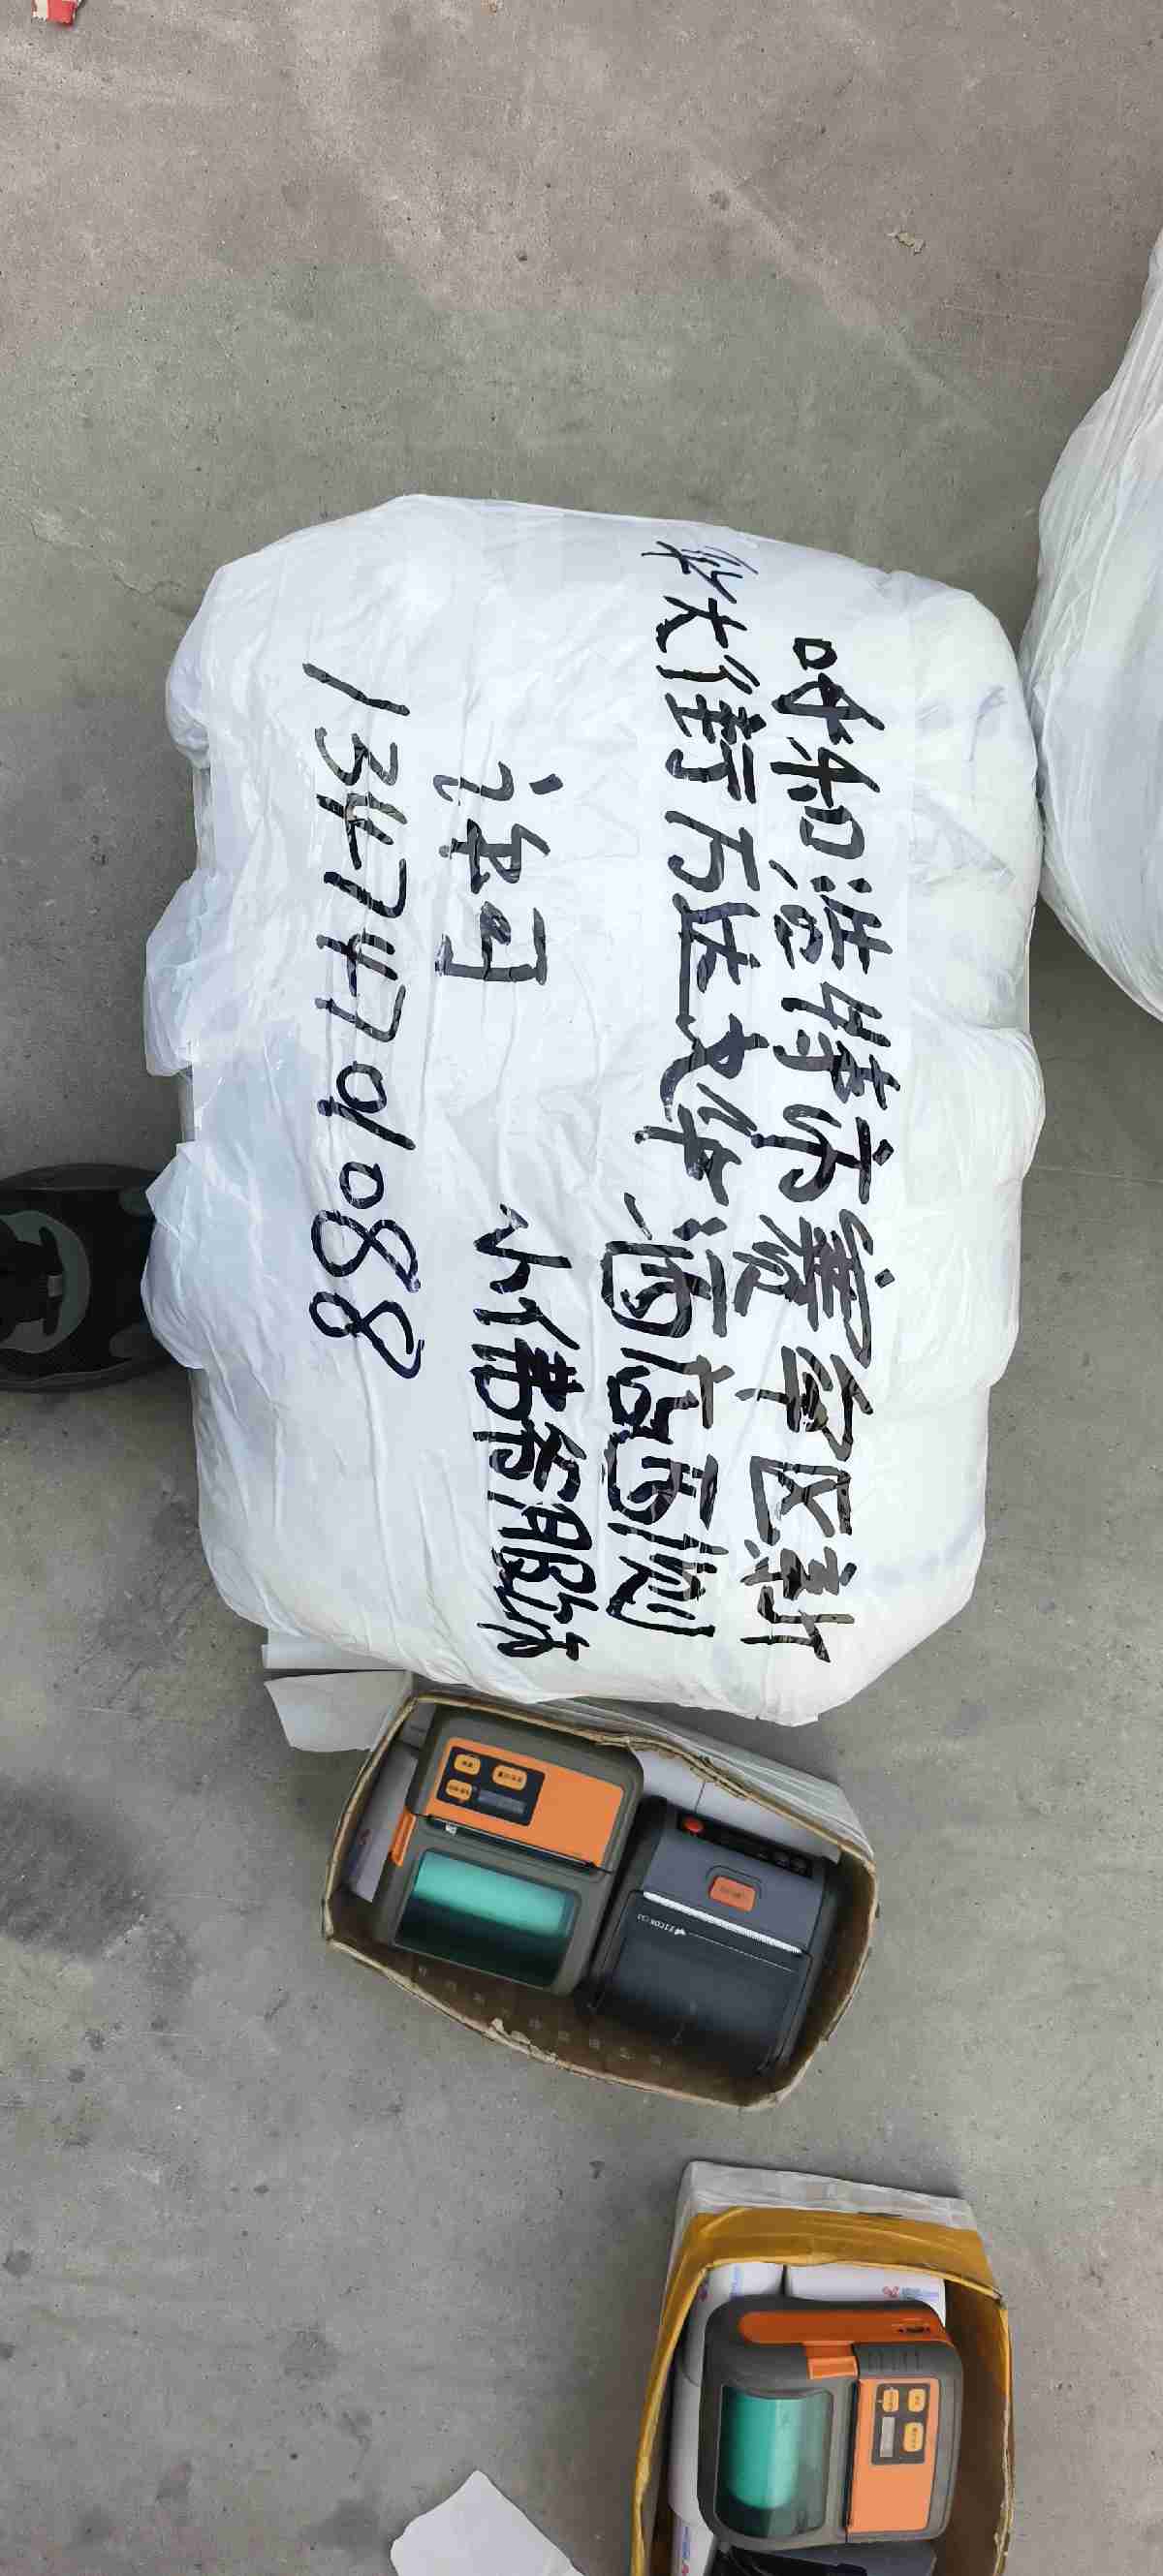 呼和浩特市赛罕区新
华大街万达文华酒店西侧
小 服饰
许
13474701088